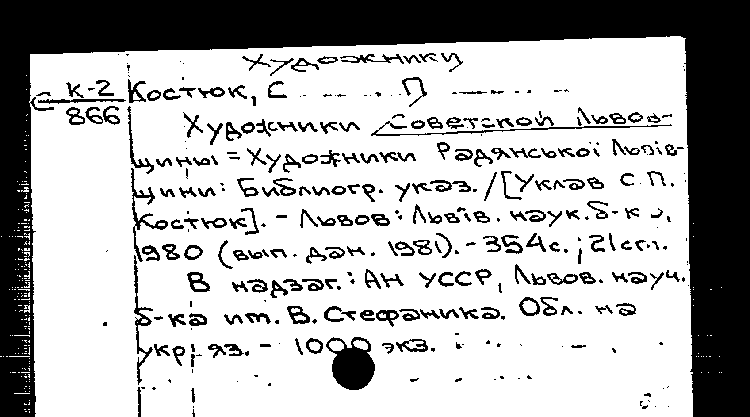 Художники
С К-2 Костюк, С П
866
Художники Советской Львов-
щины = Художники Радянської Львів-
щини: Библиогр. указ. / [Уклав С.П.
Костюк]. - Львов: Львів. наук. б-ка,
1980 (вып. дан. 1981). - 354 с.; 21 см.
В надзаг.: АН УССР, Львов. науч.
б-ка им. В. Стефаника. Обл. на
укр. яз. - 1000 экз.